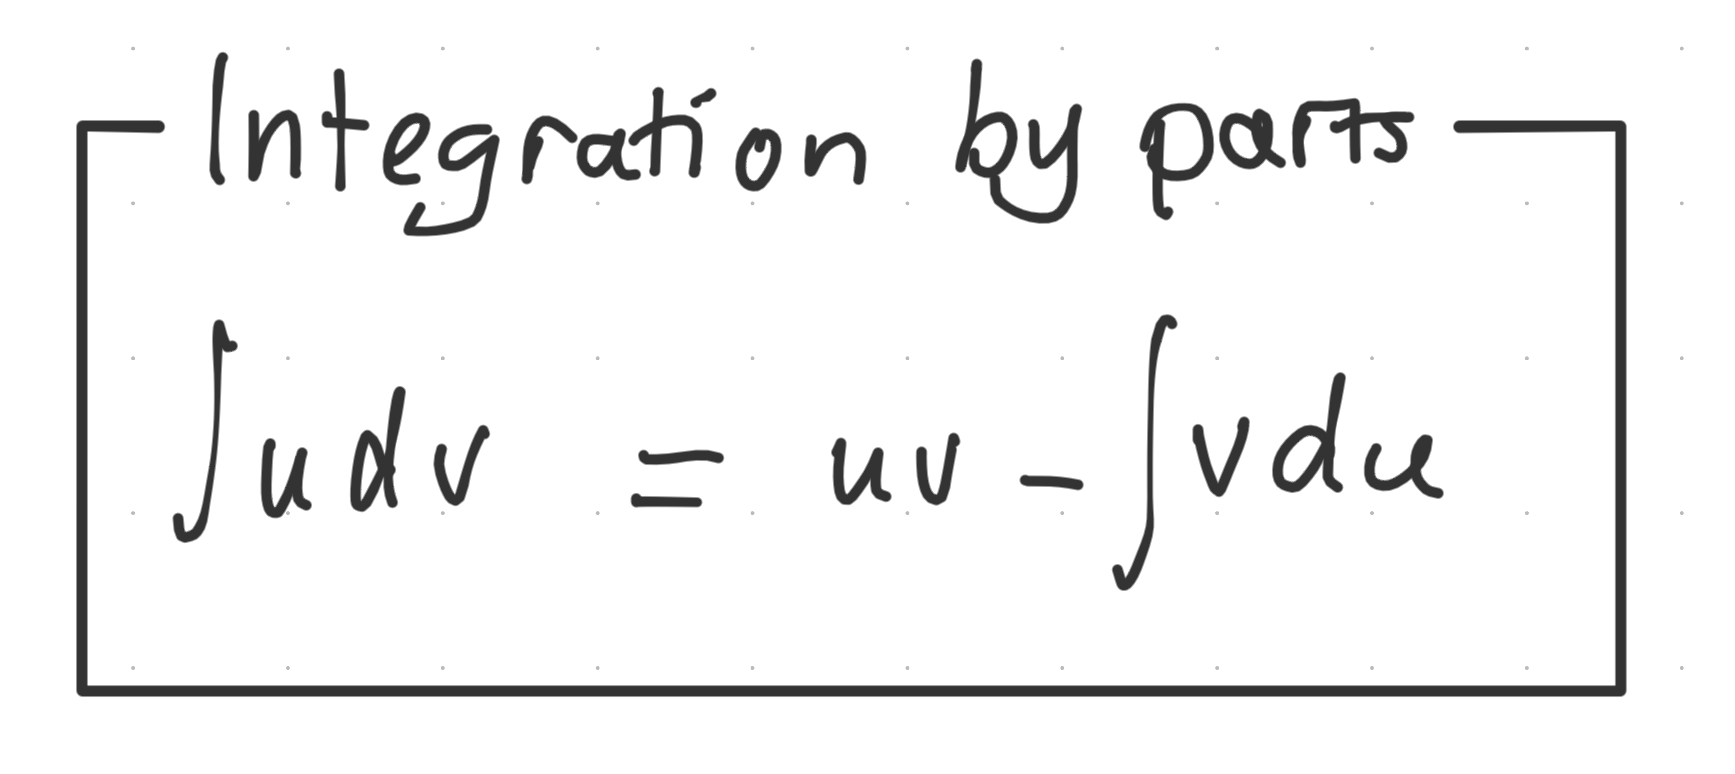 Integration by parts
∫ u dv = uv - ∫ v du